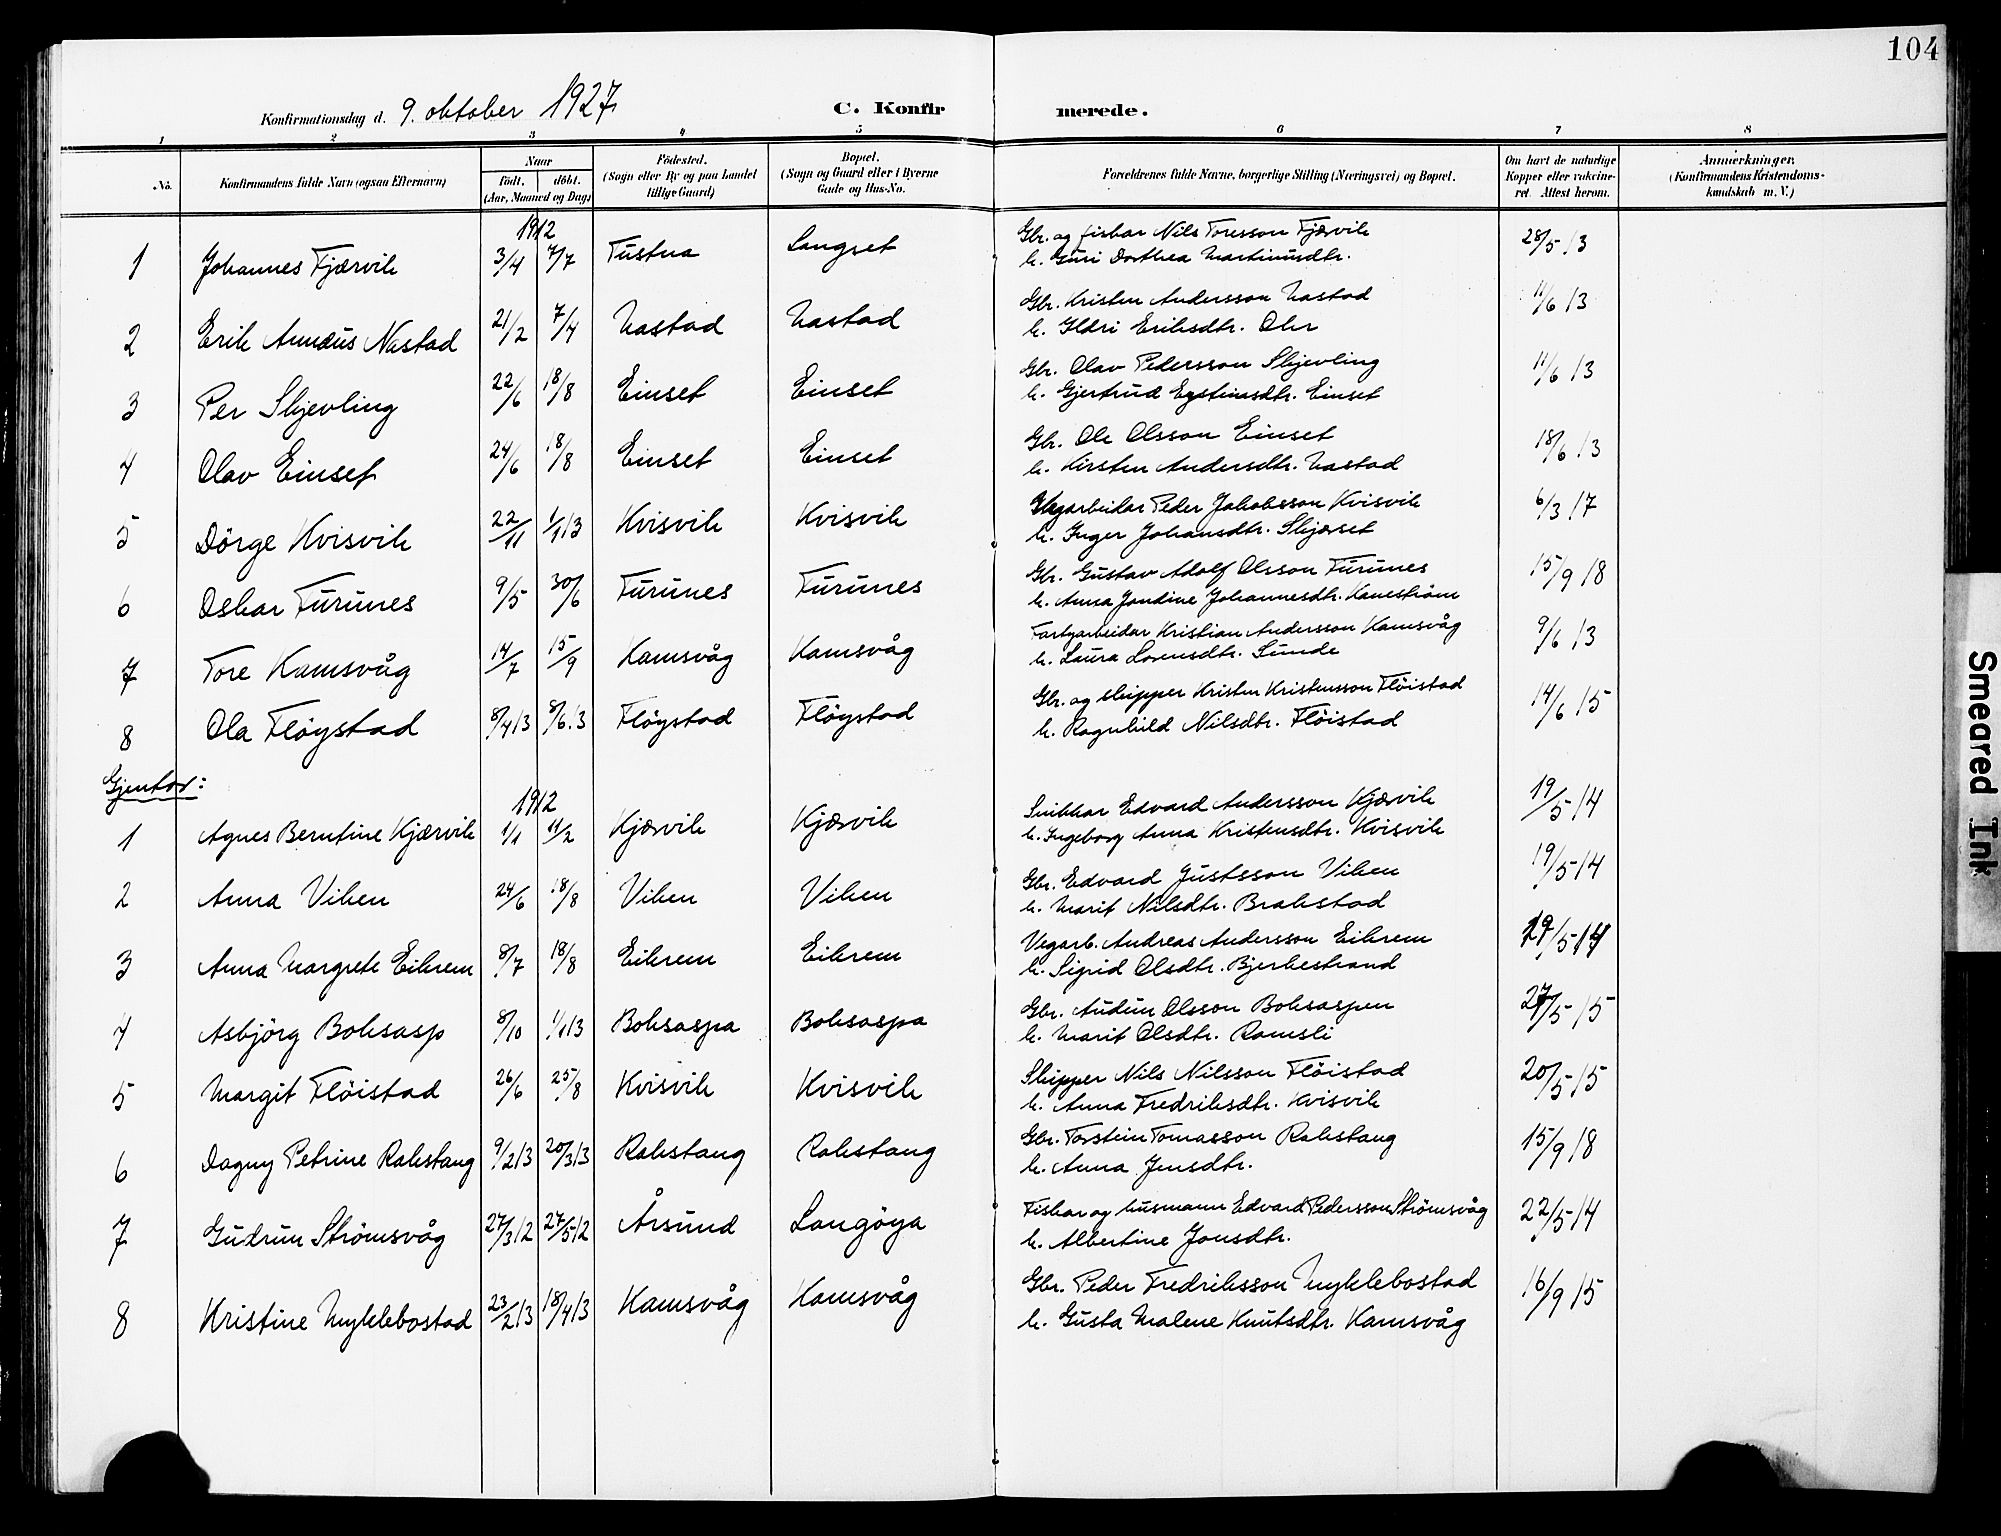 104
Konfirmationsdag d. 9. oktober 1927
C. Konfirmerede.
1 2 3 4 5 6 7 8
No. Konfirmandens fulde Navn (ogsaa Efternavn) Naar født. døbt. (Aar, Maaned og Dag) Fødested. (Sogn eller By og paa Landet tillige Gaard) Bopæl. (Sogn og Gaard eller i Byerne Gade og Hus-No. Forældrenes fulde Navne, borgerlige Stilling (Næringsvei) og Bopæl. Om havt de naturlige Kopper eller vakcineret. Attest herom. Anmærkninger. (Konfirmandens Kristendomskundskab m. V.)
1912
1 Johannes Fjærvik 3/4 7/7 Tustna Langset Gbr. og fiskar Nils Toresson Fjærvik 28/5 13
k. Guri Dorthea Martinusdtr.
2 Erik Annæus Nastad 21/2 7/4 Nastad Nastad Gbr. Kristen Andersson Nastad 11/6 13
k. Ildri Eriksdtr. Okr
3 Per Skjevling 22/6 18/8 Einset Einset Gbr. Olav Pedersson Skjevling 11/6 13
k. Gjertrud Eystinsdtr. Einset
4 Olav Einset 24/6 18/8 Einset Einset Gbr. Ole Olsson Einset 18/6 13
k. Kirsten Andersdtr. Nastad
5 Dörge Kvisvik 22/11 1/1 13 Kvisvik Kvisvik Vegarbeidar Peder Jakobsson Kvisvik 6/3 17
k. Inger Johansdtr. Skjærset
6 Oskar Furunes 9/5 30/6 Furunes Furunes Gbr. Gustav Adolf Olsson Furunes 15/9 18
k. Anna Jondine Johannesdtr. Kanestrøm
7 Tore Kamsvåg 14/7 15/9 Kamsvåg Kamsvåg Fartyarbeidar Kristian Andersson Kamsvåg 9/6 13
k. Laura Lorensdtr. Sunde
8 Ola Flöystad 8/4 13 8/6 13 Flöystad Flöystad Gbr. og skipper Kristen Kristensson Flöistad 14/6 15
k. Ragnhild Nilsdtr. Flöistad
Gjentor:
1912
1 Agnes Berntine Kjærvik 1/1 11/2 Kjærvik Kjærvik Snikkar Edvard Andersson Kjærvik 19/5 14
k. Ingeborg Anna Kristensdtr. Kvisvik
2 Anna Viken 24/6 18/8 Viken Viken Gbr. Edvard Justsson Viken 19/5 14
k. Marit Nilsdtr. Brakstad
3 Anna Margrete Eikrem 8/7 18/8 Eikrem Eikrem Vegarb. Andreas Andersson Eikrem 19/5 14
k. Sigrid Olsdtr. Bjerkestrand
4 Asbjörg Boksasp 8/10 1/1 13 Boksaspa Boksaspa Gbr. Audun Olsson Boksaspen 27/5 15
k. Marit Olsdtr. Ramsli
5 Margit Flöistad 26/6 25/8 Kvisvik Kvisvik Skipper Nils Nilsson Flöistad 20/5 15
k. Anna Fredriksdtr. Kvisvik
6 Dagny Petrine Rakstang 9/2 13 20/3 13 Rakstang Rakstang Gbr. Torstein Tomasson Rakstang 15/9 18
k. Anna Jensdtr.
7 Gudrun Strömsvåg 27/3 12 27/5 12 Årsund Langöya Fiskar og husmann Edvard Pedersson Strömsvåg 22/5 14
k. Albertine Jonsdtr.
8 Kristine Myklebostad 23/2 13 18/4 13 Kamsvåg Kamsvåg Gbr. Peder Fredriksson Myklebostad 16/9 15
k. Gusta Malene Knutsdtr. Kamsvåg
Smeared Ink